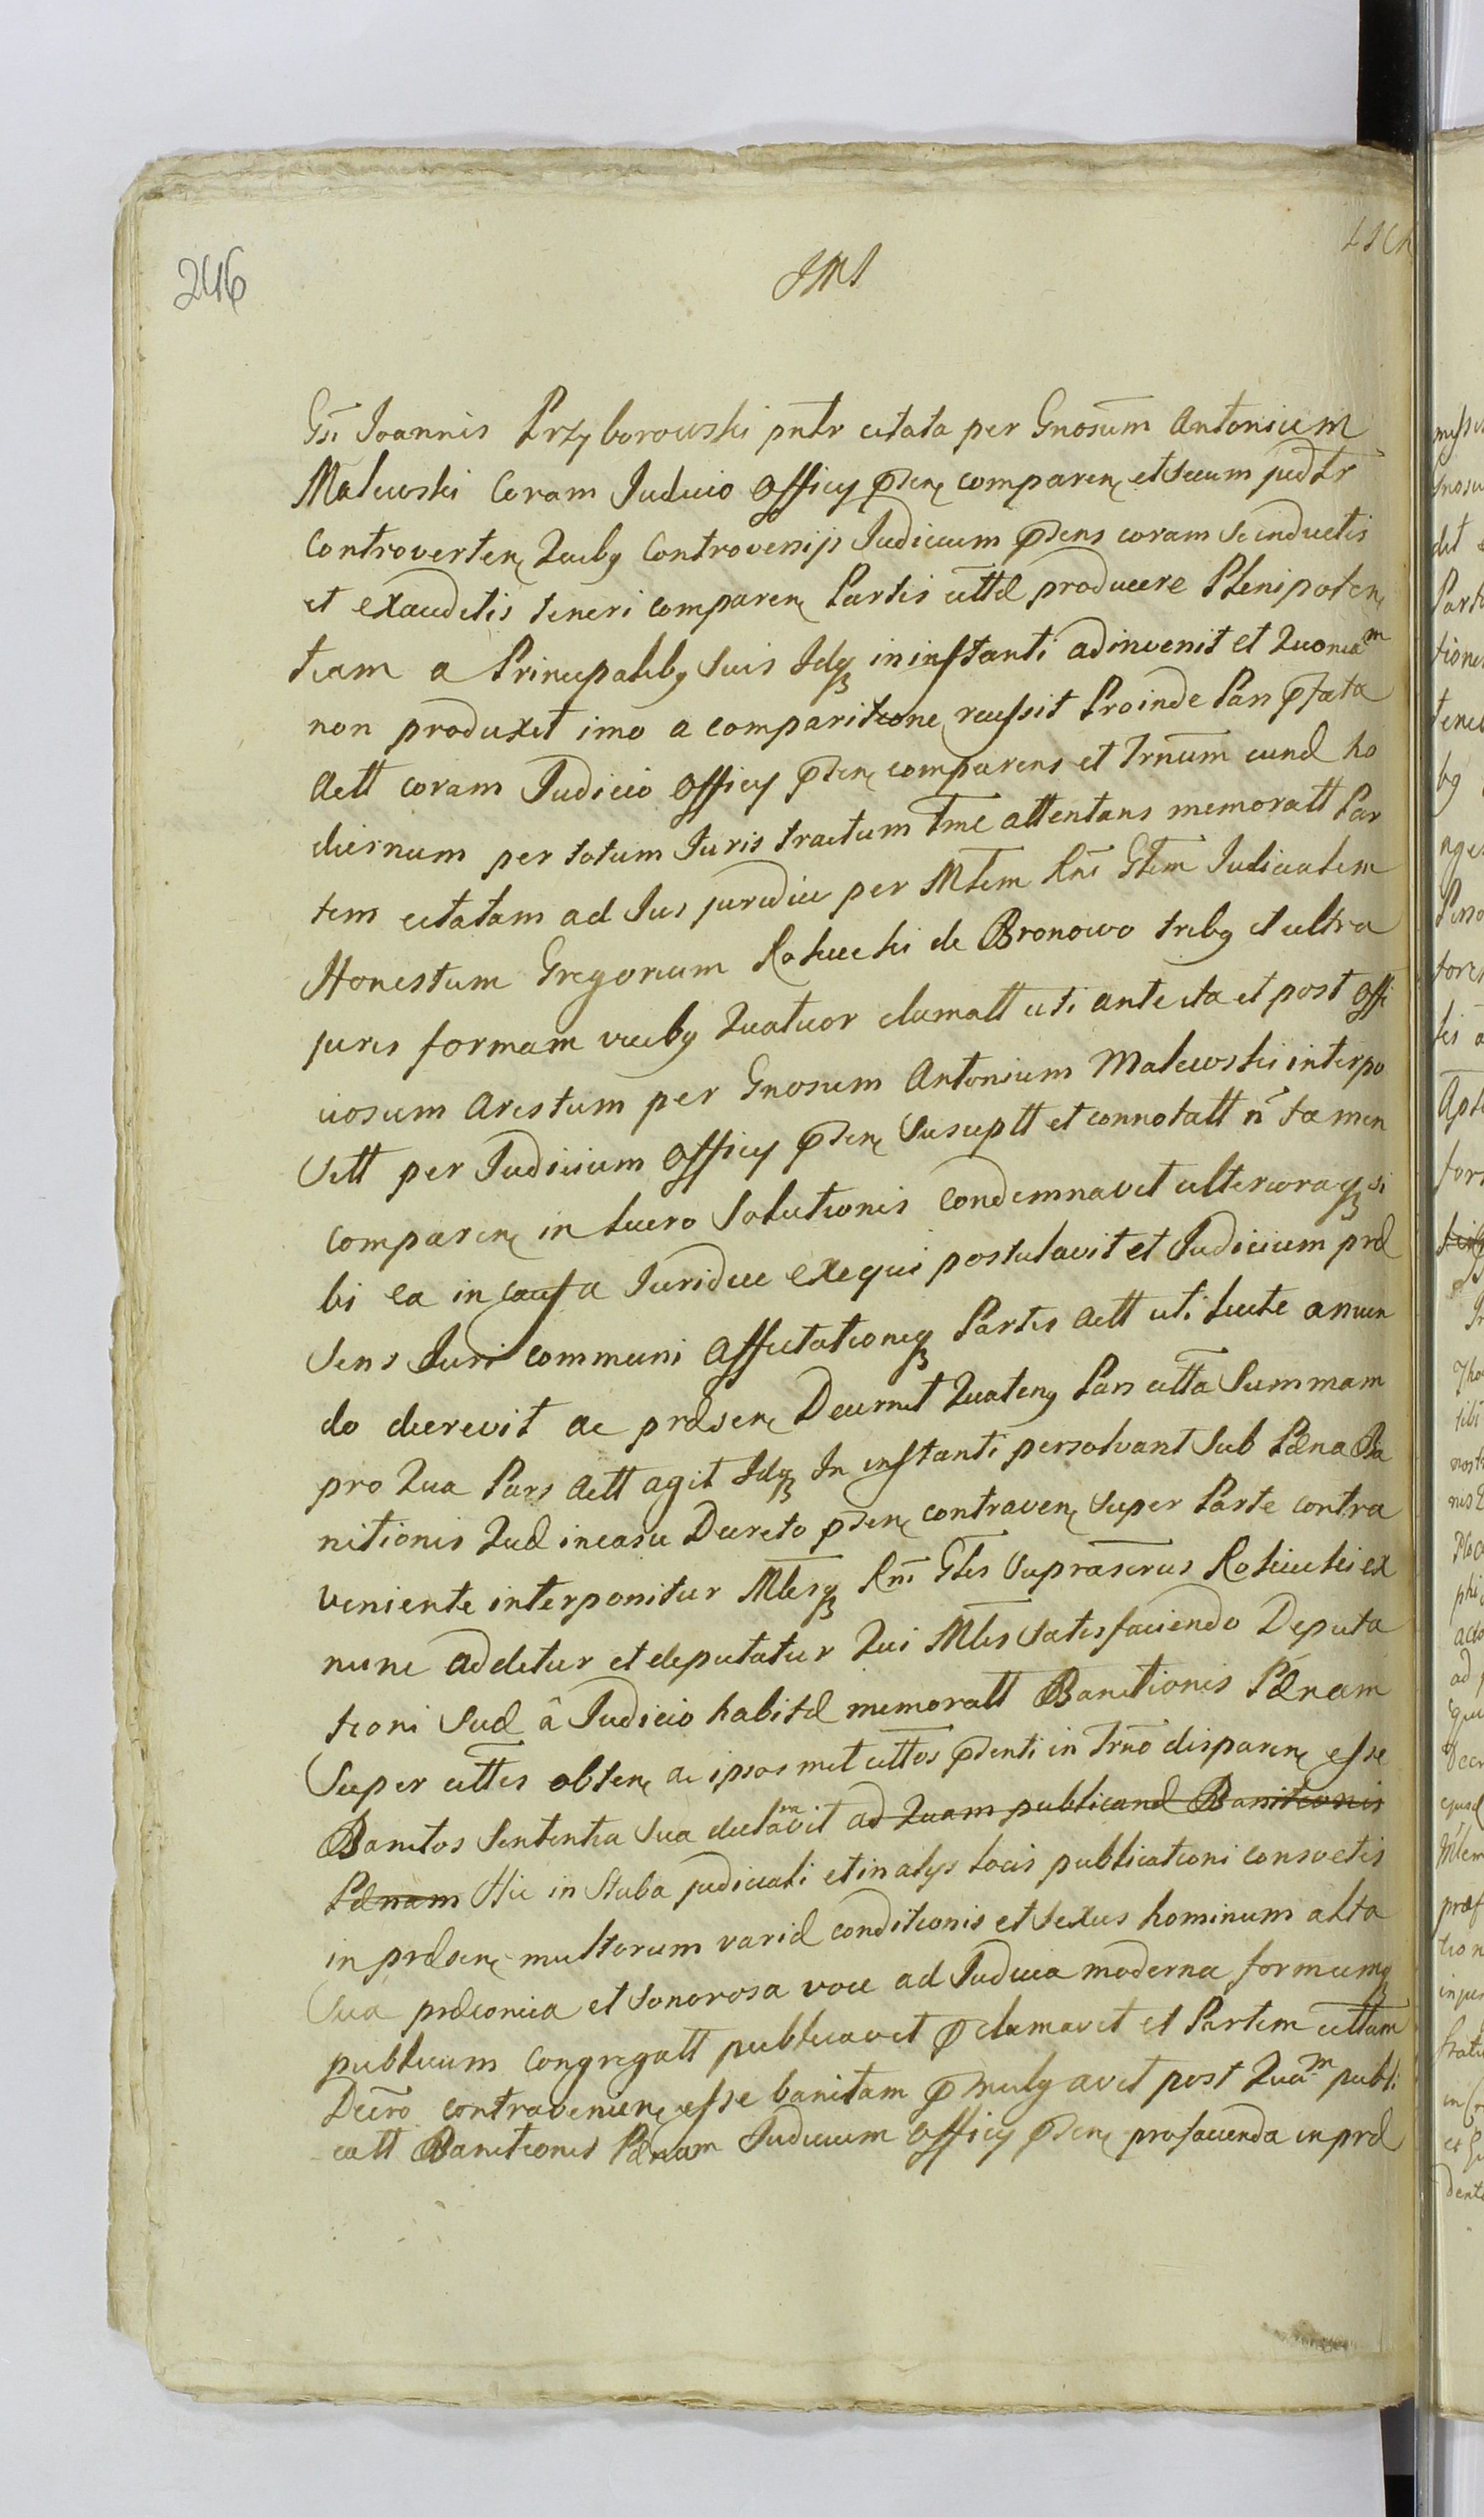 246
Gsi Joannis Przyborowski pntr citata per Gnosum Antonium
Malewski Coram Judicio Officy pden comparen et secum judtr
Controverten Quibq Controversijs Judicium pdens coram se inductis
et exauditis teneri comparen Partis cittæ producere Plenipoten
tiam a Principalibq Suis Idq in instanti adinvenit et Quonia m
non produxit imo a comparitione recessit Proinde Pars pfata
Actt coram Judicio Officy pden comparens et Trnum eund ho
diernum per totum Juris tractum Tme attentans memoratt Par
tem citatam ad Jus juridice per Mlem Rni Gtem Judicialem
Honestum Gregorium Rokicki de Bronowo tribq et ultra
juris formam vicibq Quatuor clamatt uti ante ita et post offi
ciosum Arestum per Gnosum Antonium Malewski interpo
sitt per Judicium Officy pden Susceptt et connotatt n tamen
comparen in lucro Solutionis Condemnavit ulterioraq si
bi ea in causa Juridice exequi postulavit et Judicium præ
sens Juri communi Affectationiq Partis Actt uti licite annuen
do decrevit ac præsen Decernit Quatenq Pars citta Summam
pro Qua Pars Actt agit Idq In instanti persolvant Sub Pæna Ba
nitionis Quæ in casu Decreto pden contraven Super Parte contra
veniente interponitur Mlesq Rni Gtis Suprascrus Rokicki ex
nunc additur et deputatur Qui Mlis Satisfaciendo Deputa
tioni Suæ â Judicio habitæ memoratt Banitionis Pænam
Super cittis obten ac ipsos met cittos pdenti in Trno disparen esse
Banitos Sententia Sua declaravit ad Quam publicand Banitionis
Pænam Hic in Stuba judiciali et in alys locis publicationi consvetis
in præsen multorum variæ conditionis et Sexus hominum alta
Sua præconica et Sonorosa voce ad Judicia moderna forrnumq
publicum Congregatt publicavit pclamavit et Partem cittam
Decro contravenien esse banitam pmulgavit post Qua m publi
catt Banitionis Pænam Judicium Officy pden profacienda in præ